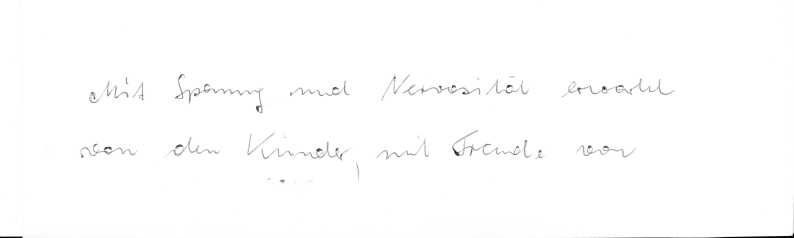 Mit Spannung und Nervosität erwartet
von den Kinder, mit Freude von